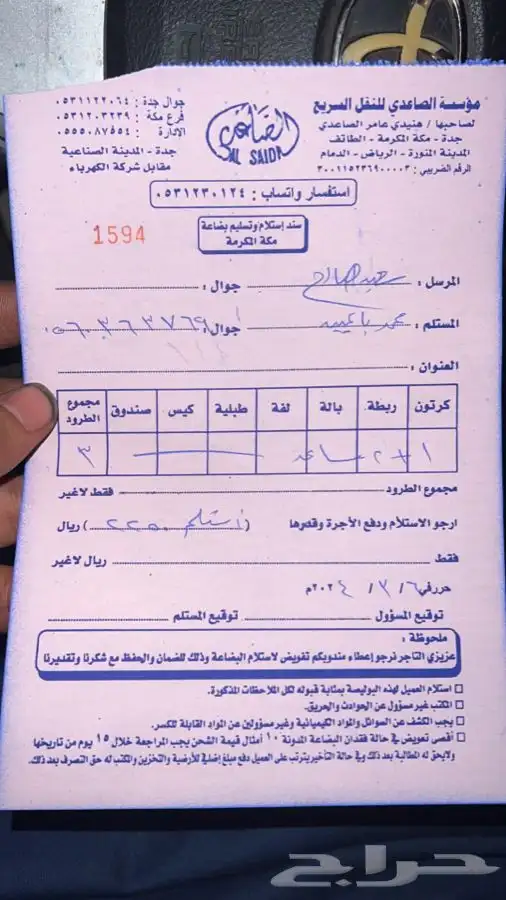 مؤسسة الصاعدي للنقل السريع
لصاحبها / هنيدي عامر الصاعدي
جدة - مكة المكرمة - الطائف
المدينة المنورة - الرياض - الدمام
الرقم الضريبي : ٣٠٠١١٥٢٣٦٩٠٠٠٠٣
الصاعدي
AL SAIDI
جوال جدة : ٠٥٣١١٢٢٠٦٤
فرع مكة : ٠٥٣١٢٠٣٢٣٩
الإدارة : ٠٥٥٥٠٨٧٥٥٤
جدة - المدينة الصناعية
مقابل شركة الكهرباء
استفسار واتساب : ٠٥٣١٢٣٠١٢٤
سند إستلام وتسليم بضاعة
مكة المكرمة
1594
المرسل : جوال :
المستلم : محمد باعييد جوال : ٠٥٦٠٣٦٣٧٦٩
العنوان :
كرتون ربطة بالة لفة طبلية كيس صندوق مجموع الطرود
١ + ٢ ٣
مجموع الطرود فقط لاغير
ارجو الاستلام ودفع الأجرة وقدرها ( استلم ٢٢٥٠ ) ريال
فقط ريال لاغير
حرر في ٦ / ٣ / ٢٠٢٤م
توقيع المسؤول توقيع المستلم
ملحوظة :
عزيزي التاجر نرجو إعطاء مندوبكم تفويض لاستلام البضاعة وذلك للضمان والحفظ مع شكرنا وتقديرنا
استلام العميل لهذه البوليصة بمثابة قبوله لكل الملاحظات المذكورة.
المكتب غير مسؤول عن الحوادث والحريق.
يجب الكشف عن السوائل والمواد الكيميائية وغير مسؤولين عن المواد القابلة للكسر.
أقصى تعويض في حالة فقدان البضاعة المدونة ١٠ أمثال قيمة الشحن يجب المراجعة خلال ١٥ يوم من تاريخها
ولايحق له المطالبة بعد ذلك وفي حالة التأخير يترتب على العميل دفع مبلغ إضافي للأرضية والتخزين والمكتب له حق التصرف بعد ذلك.
حراج